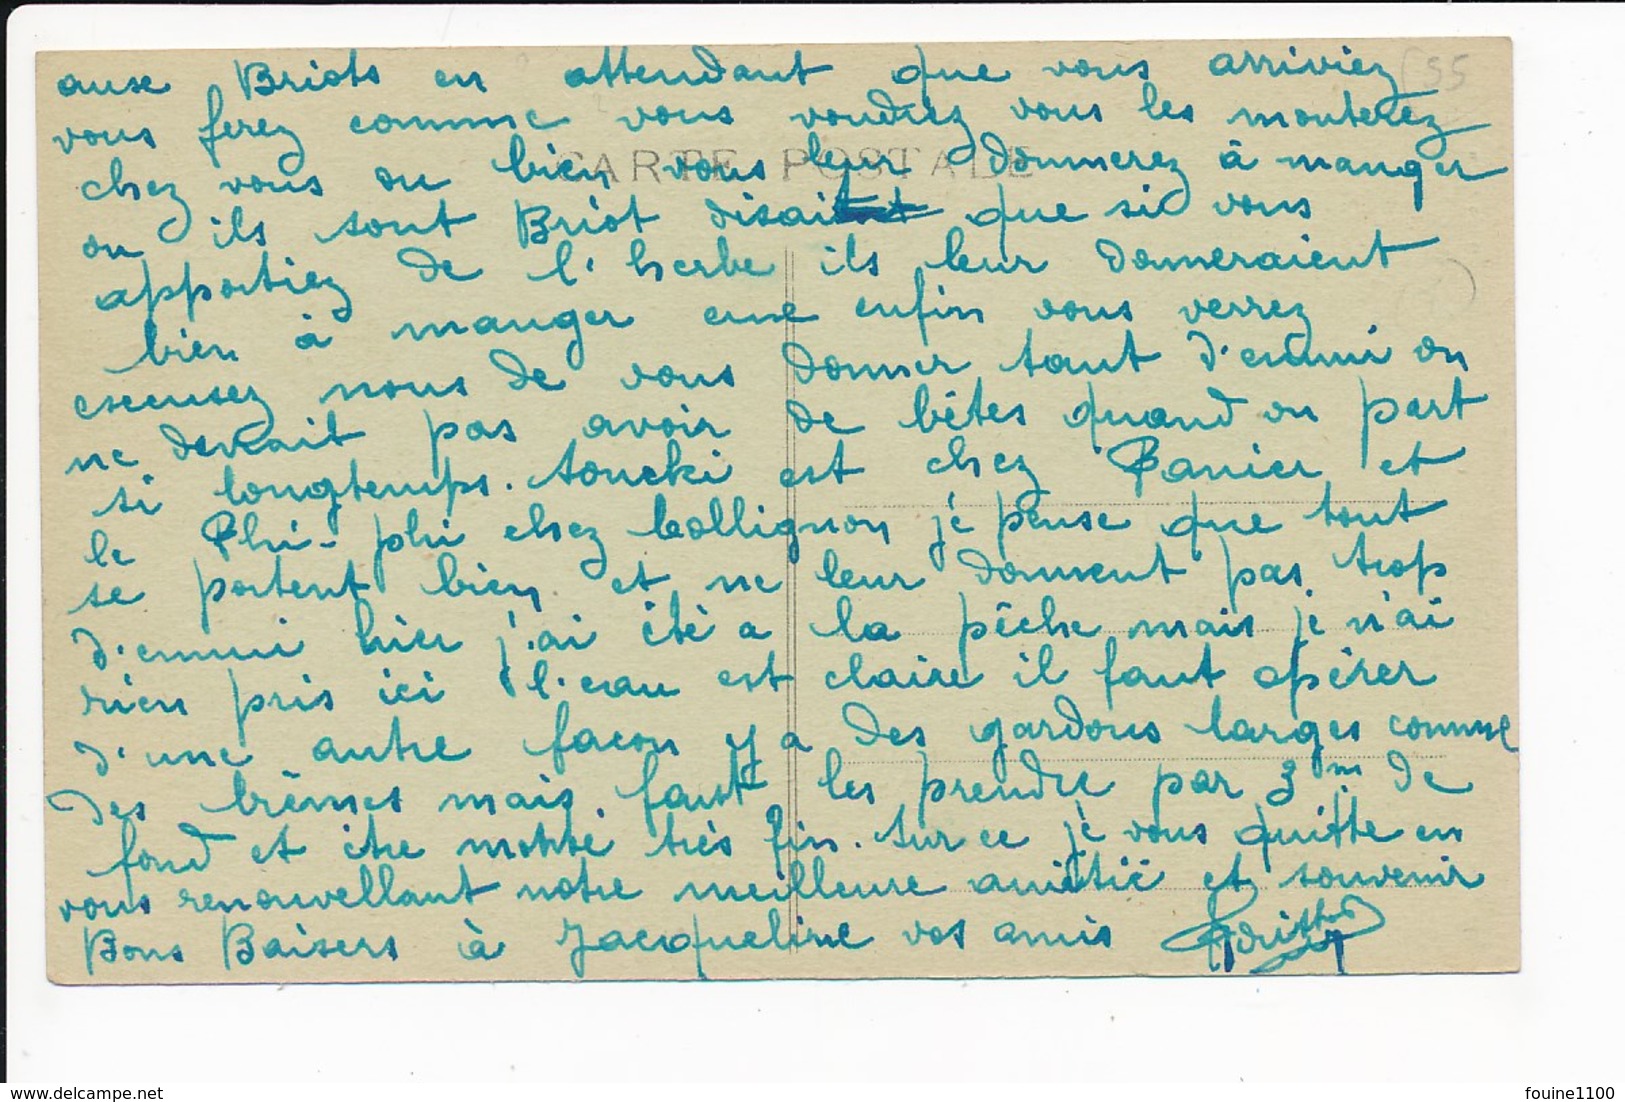 aux Briots en attendant que vous arriviez
vous ferez comme vous voudrez vous les monterez
CARTE POSTALE
chez vous ou bien vous leur donnerez à manger
ou ils sont Briot disait que si vous
apportiez de l'herbe ils leur donneraient
bien à manger enfin vous verrez
excusez nous de vous donner tant d'ennui on
ne devrait pas avoir de bêtes quand on part
si longtemps. toucki est chez Panier et
le Phi-phi chez Collignon je pense que tout
se portent bien et ne leur donnent pas trop
d'ennui hier j'ai été a la pêche mais je n'ai
rien pris ici l'eau est claire il faut opérer
d'une autre facon y a des gardons larges comme
des brèmes mais faut les prendre par 3m de
fond et être monté très fin. sur ce je vous quitte en
vous renouvellant notre meilleure amitié et souvenir
Bons Baisers à Jacqueline vos amis
55
delcampe.net
fouine1100